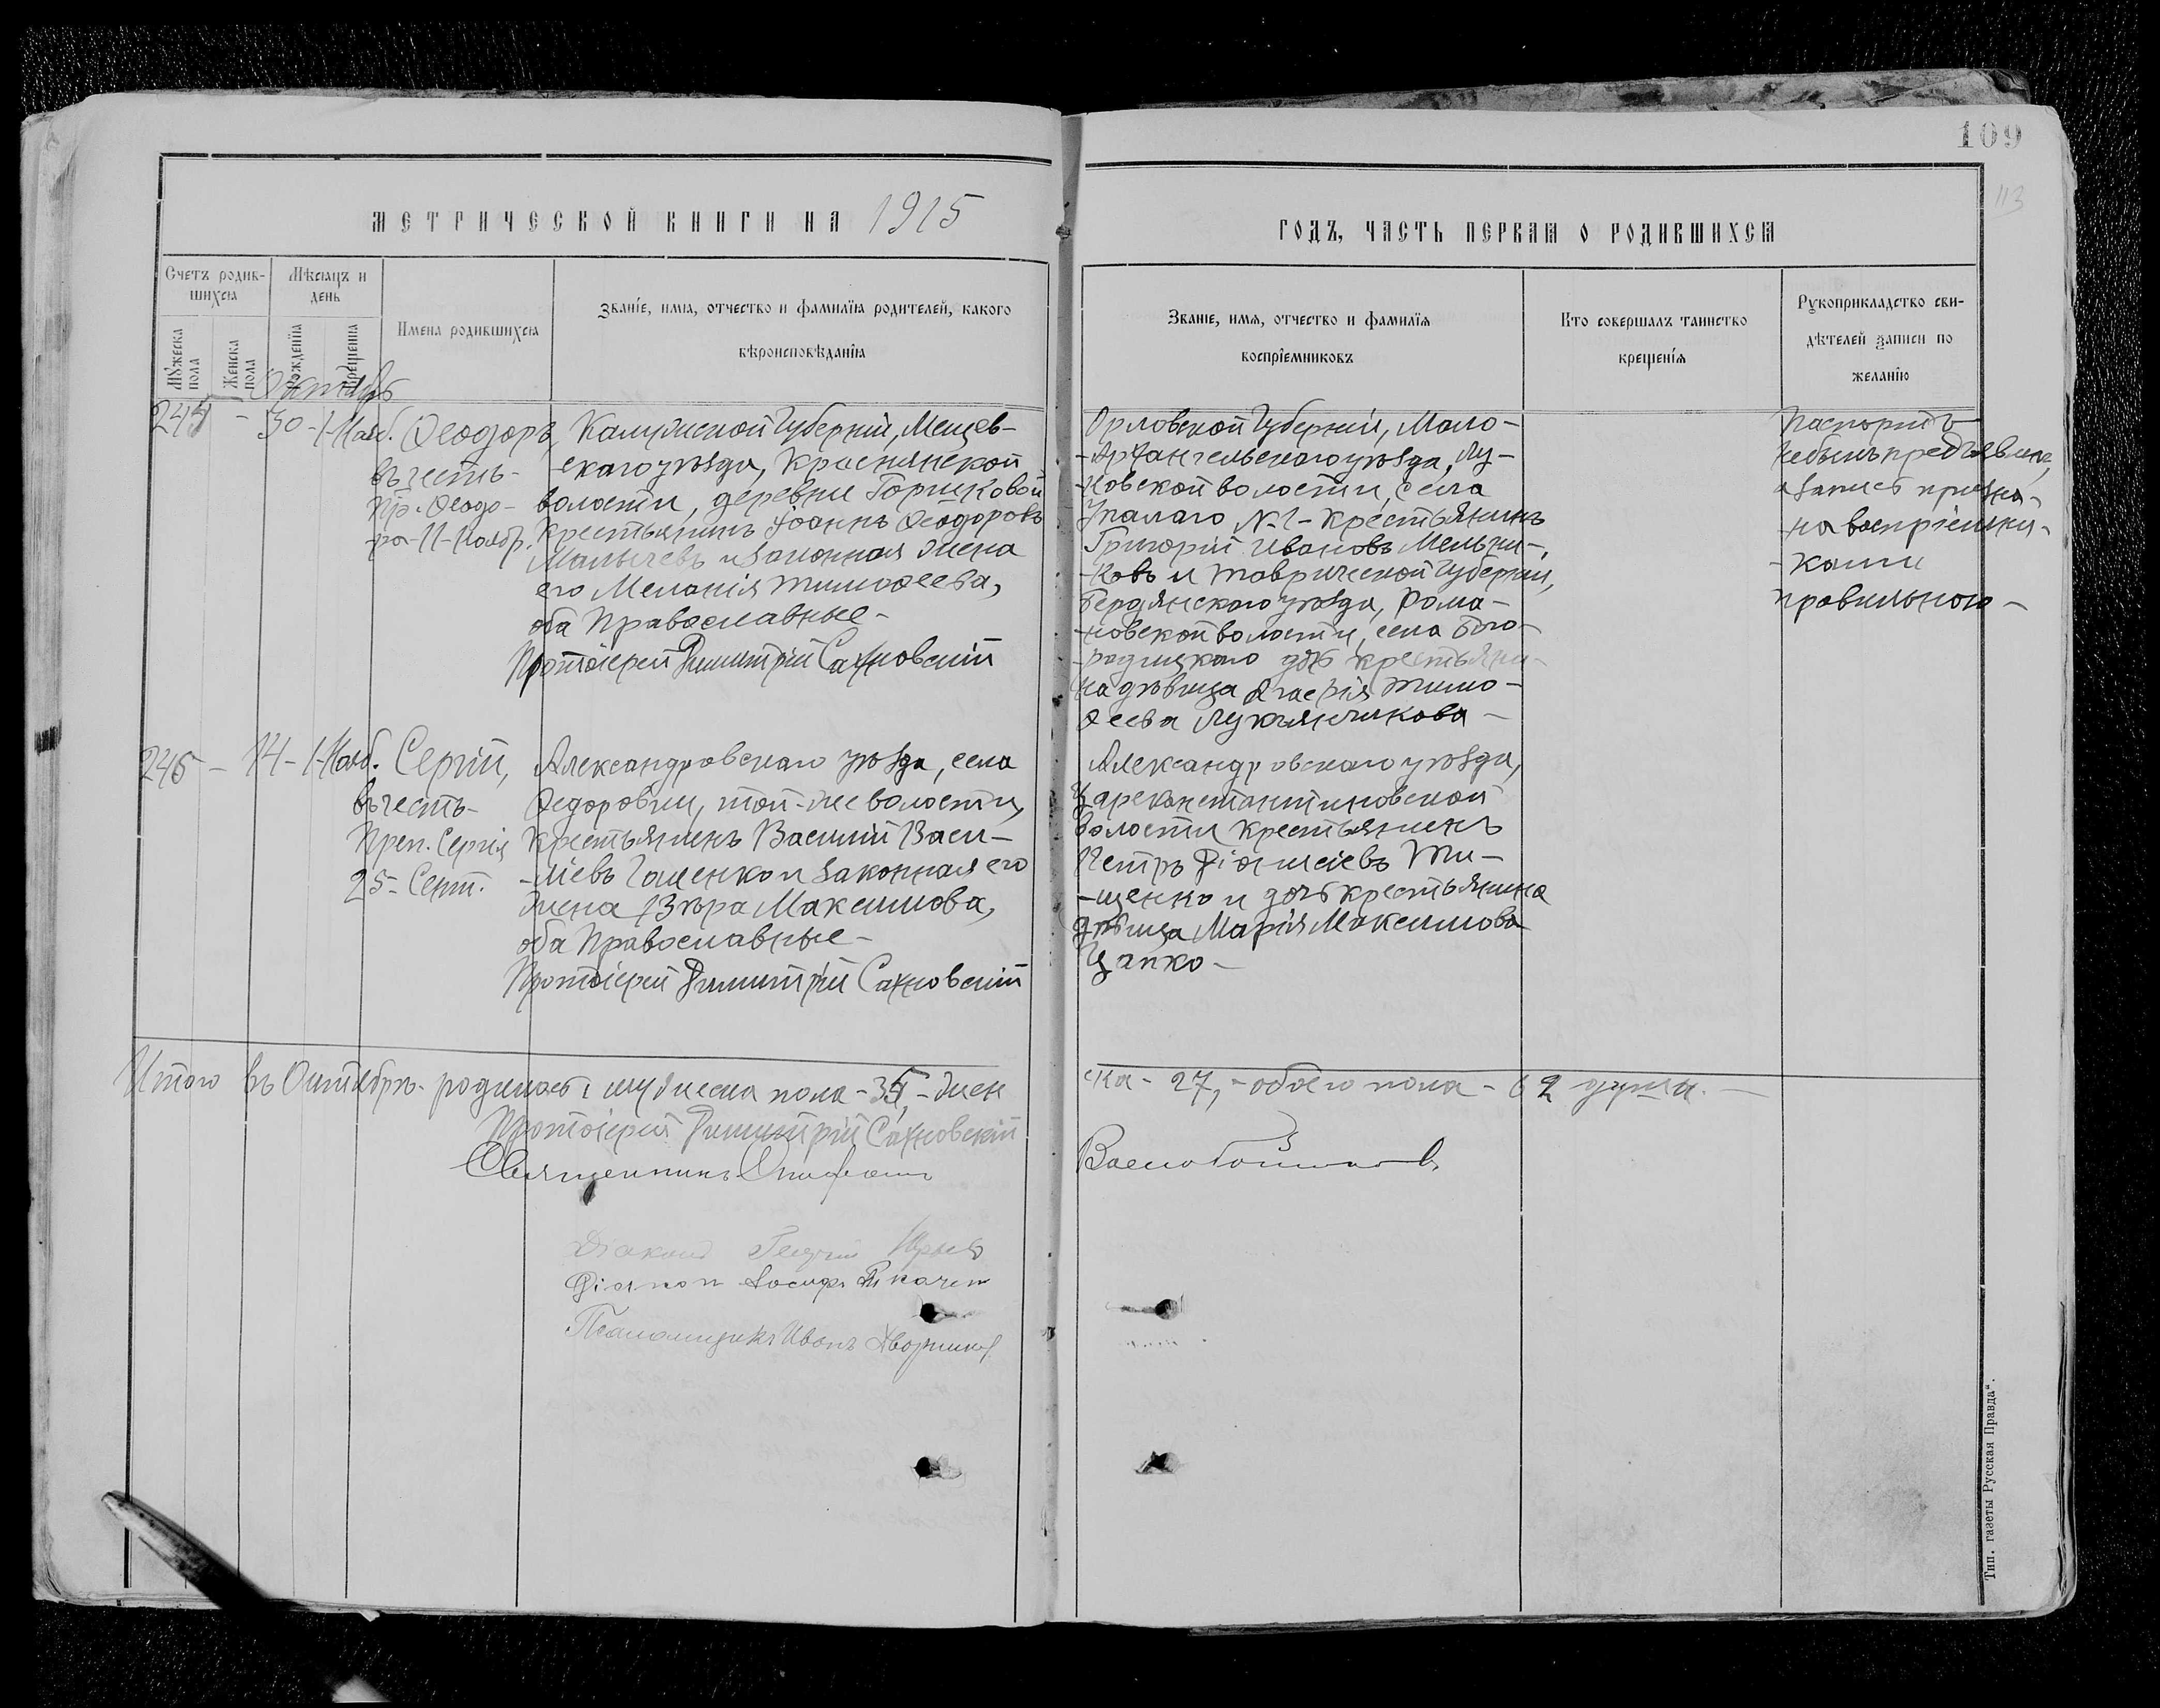 109
113
МЕТРИЧЕСКОЙ КНИГИ НА 1915
ГОДЪ, ЧАСТЬ ПЕРВАЯ О РОДИВШИХСЯ
Счетъ родив-
шихся
Мѣсяцъ и
день
Имена родившихся
Званіе, имя, отчество и фамилія родителей, какого
вѣроисповѣданія
Мужеска
пола
Женска
пола
Рожденія
Крещенія
Званіе, имя, отчество и фамилія
воспріемниковъ
Кто совершалъ таинство
крещенія
Рукоприкладство сви-
дѣтелей записи по
желанію
Октябрь
245 - 30 - 1-Нояб. Ѳеодоръ,
въ честь-
Пр. Ѳеодо-
ра-11-Ноябр.
Калужской Губерніи, Мещев-
скаго уѣзда,
волости, деревни Горшковой
Крестьянинъ Іоаннъ Ѳеодоровъ
Малычевъ и законная жена
его Меланія Тимоѳеева,
оба Православные-
Протоіерей Димитрій Сахновскій
Орловской Губерніи, Мало-
-Архангельскаго уѣзда, Лу-
-ковской волости, села
№1- Крестьянинъ
Григорій Ивановъ Мельни-
-ковъ и Таврической Губерніи,
Бердянскаго уѣзда, Рома-
-новской волости, села Бого-
-родицкаго дочь крестьяни-
на дѣвица Агаѳія Тимо-
ѳеева Лукьянчикова-
Паспортъ
небылъ предъявленъ,
а запись призна-
на воспріемни-
-ками
правильною-
246 - 14 - 1-Нояб. Сергій,
въ честь-
Преп. Сергія
25- Сент.
Александровскаго уѣзда, села
Ѳедоровки, той-же волости,
Крестьянинъ Василій Васи-
-ліевъ Гащенко и законная его
жена Вѣра Максимова,
оба Православные-
Протоіерей Димитрій Сахновскій
Александровскаго уѣзда,
Цареконстантиновской
волости крестьянинъ
Петръ Ти-
-щенко и дочь крестьянина
дѣвица Марія Максимова
Цапко-
Итого въ Октябрѣ- родилось: мужеска пола - 35, - жен
ска - 27, - обоего пола - 62 души. -
Протоіерей Димитрій Сахновскій
Священникъ
Діаконъ Георгій
Діаконъ Іосифъ Ткачен
Псаломщикъ Иванъ Дворников
Тип. газеты Русская Правда“.